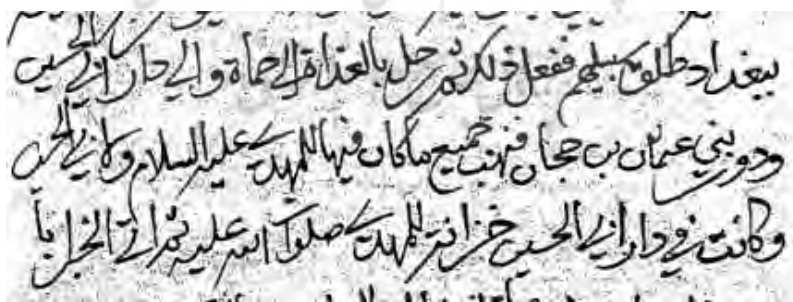 ببغداد طلق سبيلهم ففعل ذلك ثم رحل بالغداة الى حماة والى دار ابي الحسين
ودور بني عمار بن حجار فنهب جميع ما كان فيها للمهدي عليه السلام ولابي الحسين
وكانت في دار ابي الحسين خزانة للمهدي صلوات الله عليه ثم اتى الخبر بأ